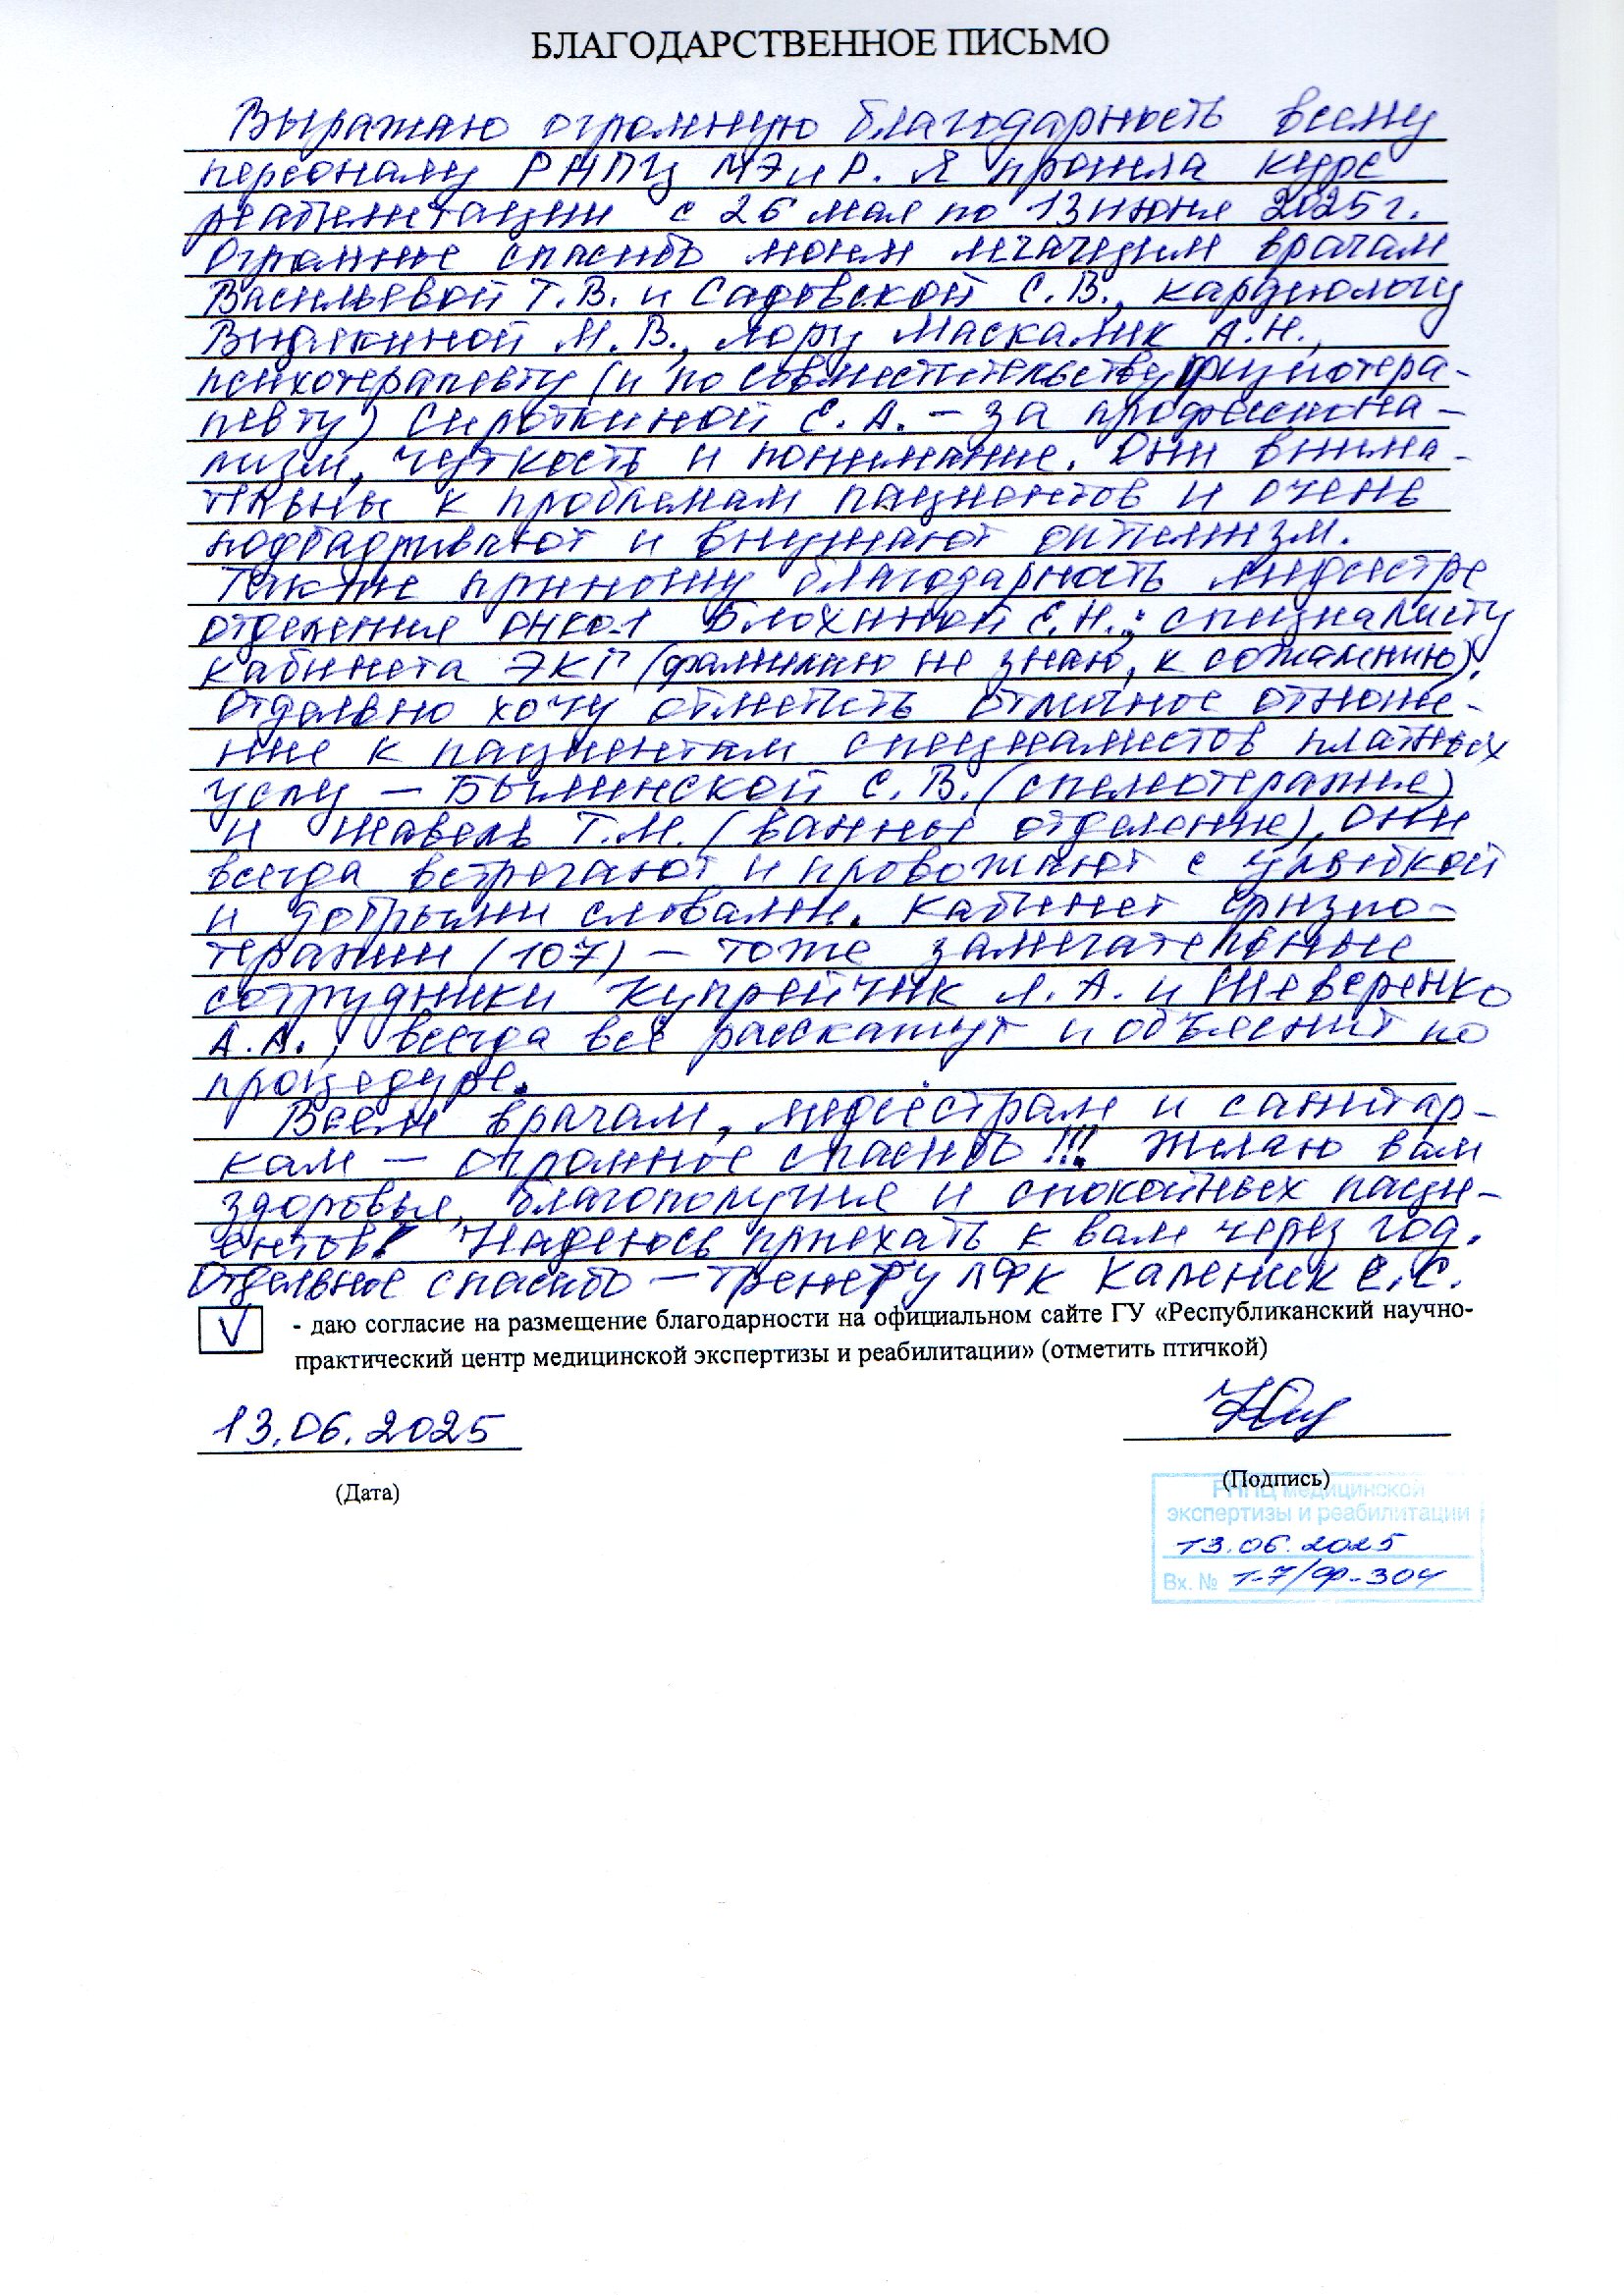 БЛАГОДАРСТВЕННОЕ ПИСЬМО
Выражаю огромную благодарность всему
персоналу РНПЦ МЭиР. Я прошла курс
реабилитации с 26 мая по 13 июня 2025 г.
Огромное спасибо моим лечащим врачам
Васильевой Т.В. и Садовской С.В., кардиологу
М.В., лору Маскалик А.Н.,
психотерапевту (и по совместительству физиотера-
певту) Сироткиной Е.А. – за профессиона-
лизм, четкость и понимание. Они внима-
тельны к проблемам пациентов и очень
подбадривают и внушают оптимизм.
Также приношу благодарность медсестре
отделения онко-1 Блохиной Е.Н.; специалисту
кабинета ЭКГ (фамилию не знаю, к сожалению).
Отдельно хочу отметить отличное отноше-
ние к пациентам специалистов платных
услуг – Былинской С.В. (спелеотерапия)
и Жавель Т.М. (ванное отделение), они
всегда встречают и провожают с улыбкой
и добрыми словами. Кабинет физио-
терапии (107) – тоже замечательные
сотрудники Купрейчик Л.А. и Шеверенко
А.А., всегда все расскажут и объяснит по
процедуре.
Всем врачам, медсестрам и санитар-
кам – огромное спасибо!!! Желаю вам
здоровья, благополучия и спокойных паци-
ентов! Надеюсь приехать к вам через год.
Отдельное спасибо – тренеру ЛФК Каленик Е.С.
V - даю согласие на размещение благодарности на официальном сайте ГУ «Республиканский научно-
практический центр медицинской экспертизы и реабилитации» (отметить птичкой)
13.06.2025
(Дата) (Подпись)
РНПЦ медицинской
экспертизы и реабилитации
13.06.2025
Вх. № 1-7/Ф-304